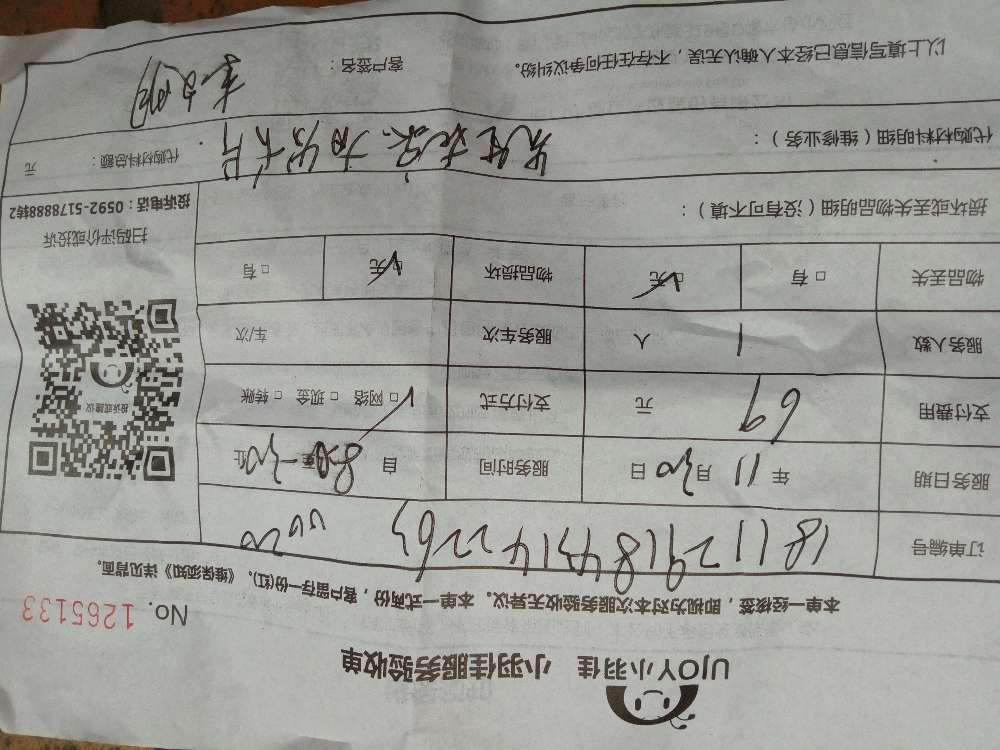 UJOY小羽佳 小羽佳服务验收单
No. 1265133
本单一经接签，即视为对本次服务验收无异议。本单一式两份，客户留存一份(红)。《维保须知》详见背面。
订单编号
服务日期 年 11 月 30 日 服务时间 自 8:30
支付费用 69 元 支付方式 □ 网络 □ 现金 □ 转账
服务人数 1 人 服务车次 车/次
物品丢失 □ 有 □ 无 物品损坏 □ 无 □ 有
投诉或建议
扫码评价或投诉
投诉电话：0592-5178888转2
损坏或丢失物品明细（没有可不填）：
代购材料明细（维修业务）：
代购材料总额： 元
以上填写信息已经本人确认无误，不存在任何争议纠纷。 客户签名：